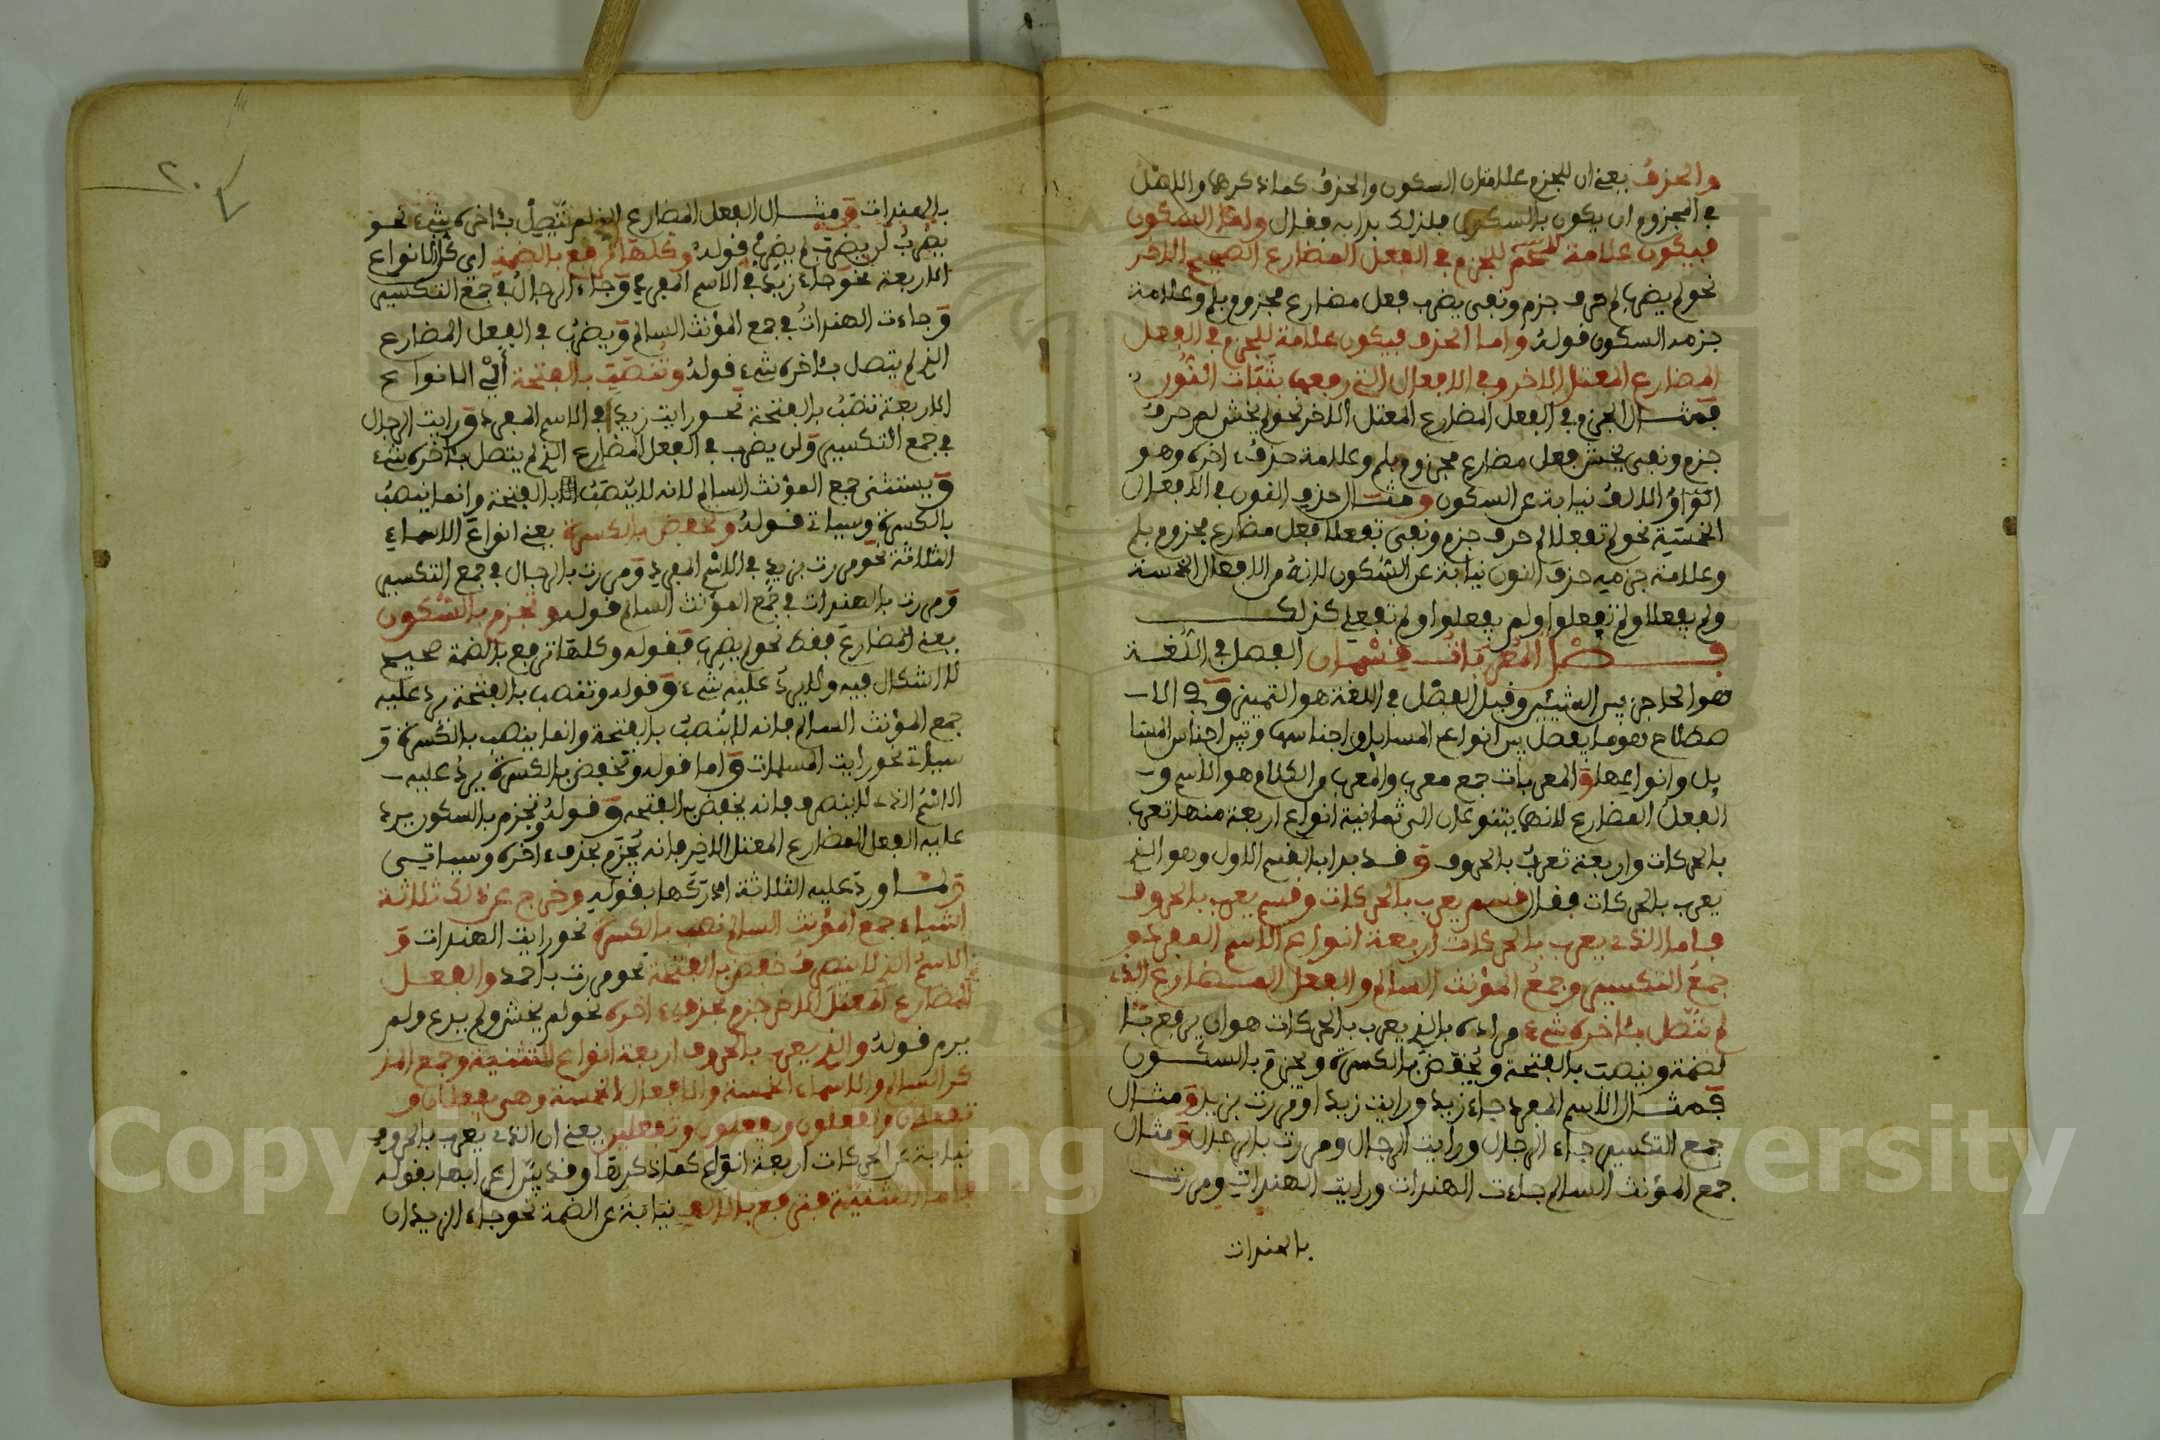 والحذف يعني ان للجزم علامتان السكون والحذف كما ذكرها والاصل
في المجزوم ان يكون بالسكون فلذلك بدا به فقال واما السكون
فيكون علامة للجزم في الفعل المضارع الصحيح الاخر
نحو لم يضرب لم حرف جزم ونفي يضرب فعل مضارع مجزوم بلم وعلامة
جزمه السكون قوله واما الحذف فيكون علامة للجزم في الفعل
المضارع المعتل الاخر وفي الافعال التي رفعها بثبات النون
فمثال الجزم في الفعل المضارع المعتل الاخر نحو لم يخش لم حرف
جزم ونفي يخش فعل مضارع مجزوم بلم وعلامة حذف ءاخره وهو
الالف نيابة عن السكون ومثال حذف النون في الافعال
الخمسة نحو لم تفعلا لم حرف جزم ونفي تفعلا فعل مضارع مجزوم بلم
وعلامة جزمه حذف النون نيابة عن السكون لانه من الافعال الخمسة
ولم يفعلا ولم تفعلوا ولم يفعلوا ولم تفعلي كذلك
فصل المعربات قسمان الفصل في اللغة
هو الحاجز بين الشيئين وقيل الفصل في اللغة هو التمييز وفي الا
صطلاح هو ما يفصل بين انواع المسايل واجناسها وبين اجناس المسا
يل وانواعها والمعربات جمع معرب والمعرب من الكلام هو الاسم و
الفعل المضارع لانهما يتنوعان الى ثمانية انواع اربعة منها تعرب
بالحركات واربعة تعرب بالحروف وقد بدا بالقسم الاول وهو الذي
يعرب بالحركات فقال قسم يعرب بالحركات وقسم يعرب بالحروف
فاما الذي يعرب بالحركات اربعة انواع الاسم المفرد و
جمع التكسير وجمع المؤنث السالم والفعل المضارع الذي
لم يتصل بئاخره شيء مراده بالذي يعرب بالحركات هو ان يرفع با
لضمة وينصب بالفتحة ويخفض بالكسرة ويجزم بالسكون
فمثال الاسم المفرد جاء زيد ورايت زيدا ومررت بزيد ومثال
جمع التكسير جاء الرجال ورايت الرجال ومررت بالرجال ومثال
جمع المؤنث السالم جاءت الهندات ورايت الهندات ومررت
بالهندات
٢٠
بالهندات ومثال الفعل المضارع الذي لم يتصل بئاخره شيء نحو
يضرب لن يضرب لم يضرب قوله وكلها ترفع بالضمة اي كل الانواع
الاربعة نحو جاء زيد في الاسم المفرد وجاء الرجال في جمع التكسير
وجاءت الهندات في جمع المؤنث السالم ويضرب في الفعل المضارع
الذي لم يتصل بئاخره شيء قوله وتنصب بالفتحة أي الانواع
الاربعة تنصب بالفتحة نحو رايت زيدا في الاسم المفرد ورايت الرجال
في جمع التكسير ولن يضرب في الفعل المضارع الذي لم يتصل بئاخره شيء
ويستثنى جمع المؤنث السالم لانه لا ينصب بالفتحة وانما ينصب
بالكسرة وسياتي قوله وتخفض بالكسرة يعني انواع الاسماء
الثلاثة نحو مررت بزيد في الاسم المفرد ومررت بالرجال في جمع التكسير
ومررت بالهندات في جمع المؤنث السالم قوله وتجزم بالسكون
يعني المضارع فقط نحو لم يضرب فقوله وكلها ترفع بالضمة صحيح
لا اشكال فيه ولا يرد عليه شيء وقوله وتنصب بالفتحة يرد عليه
جمع المؤنث السالم فانه لا ينصب بالفتحة وانما ينصب بالكسرة و
سياتي نحو رايت المسلمات واما قوله وتخفض بالكسرة يرد عليه
الاسم الذي لا ينصرف فانه يخفض بالفتحة وقوله وتجزم بالسكون يرد
عليه الفعل المضارع المعتل الاخر فانه يجزم بحذف ءاخره وسياتي
ولما ورد عليه الثلاثة استدركها بقوله وخرج عن ذلك ثلاثة
اشياء جمع المؤنث السالم نصب بالكسرة نحو رايت الهندات و
الاسم الذي لا ينصرف خفض بالفتحة نحو مررت باحمد والفعل
المضارع المعتل الاخر جزم بحذف ءاخره نحو لم يخش ولم يدع ولم
يرم قوله والذي يعرب بالحروف اربعة انواع التثنية وجمع المذ
كر السالم والاسماء الخمسة والافعال الخمسة وهي يفعلان و
تفعلان وتفعلون ويفعلون وتفعلين يعني ان الذي يعرب بالحروف
نيابة عن الحركات اربعة انواع كما ذكرها وقد بين اعرابها بقوله
فاما التثنية فترفع بالالف نيابة عن الضمة نحو جاء الزيدان
Copyright © King Saud University